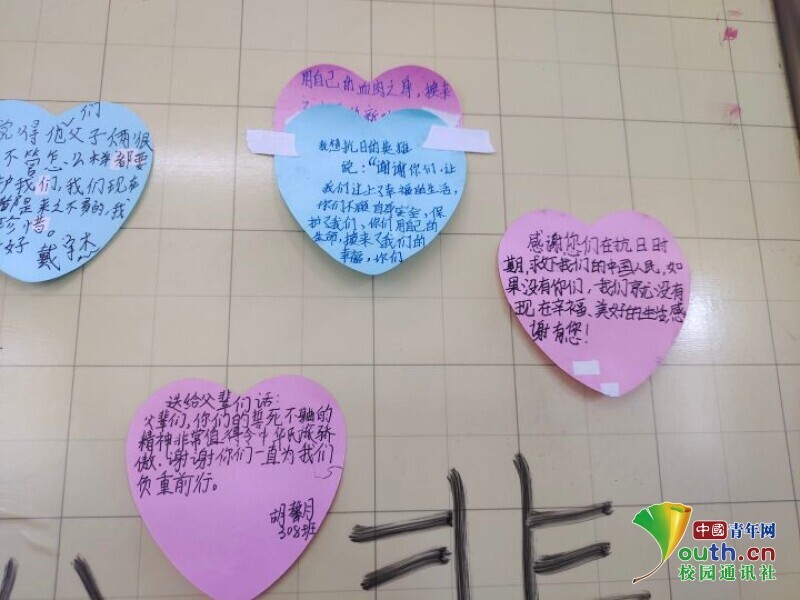 们
觉得他父子俩很
不管怎么样都要
护我们,我们现在
都是来之不易的,我
珍惜。
好 戴
用自己的血肉之身,换来
我想抗日的英雄
说:“谢谢你们,让
我们过上了幸福的生活,
你们不顾自身安全,保
护了我们,你们用自己的
生命,换来了我们的
幸福,你们
感谢您们在抗日时
期,救下我们的中国人民,如
果没有你们,我们就没有
现在幸福、美好的生活,感
谢有您!
送给父辈们话:
父辈们,你们的誓死不屈的
精神非常值得令中华民族骄
傲,谢谢你们一直为我们
负重前行。
胡馨月
308班
非
中國青年网
Youth.cn
校园通讯社